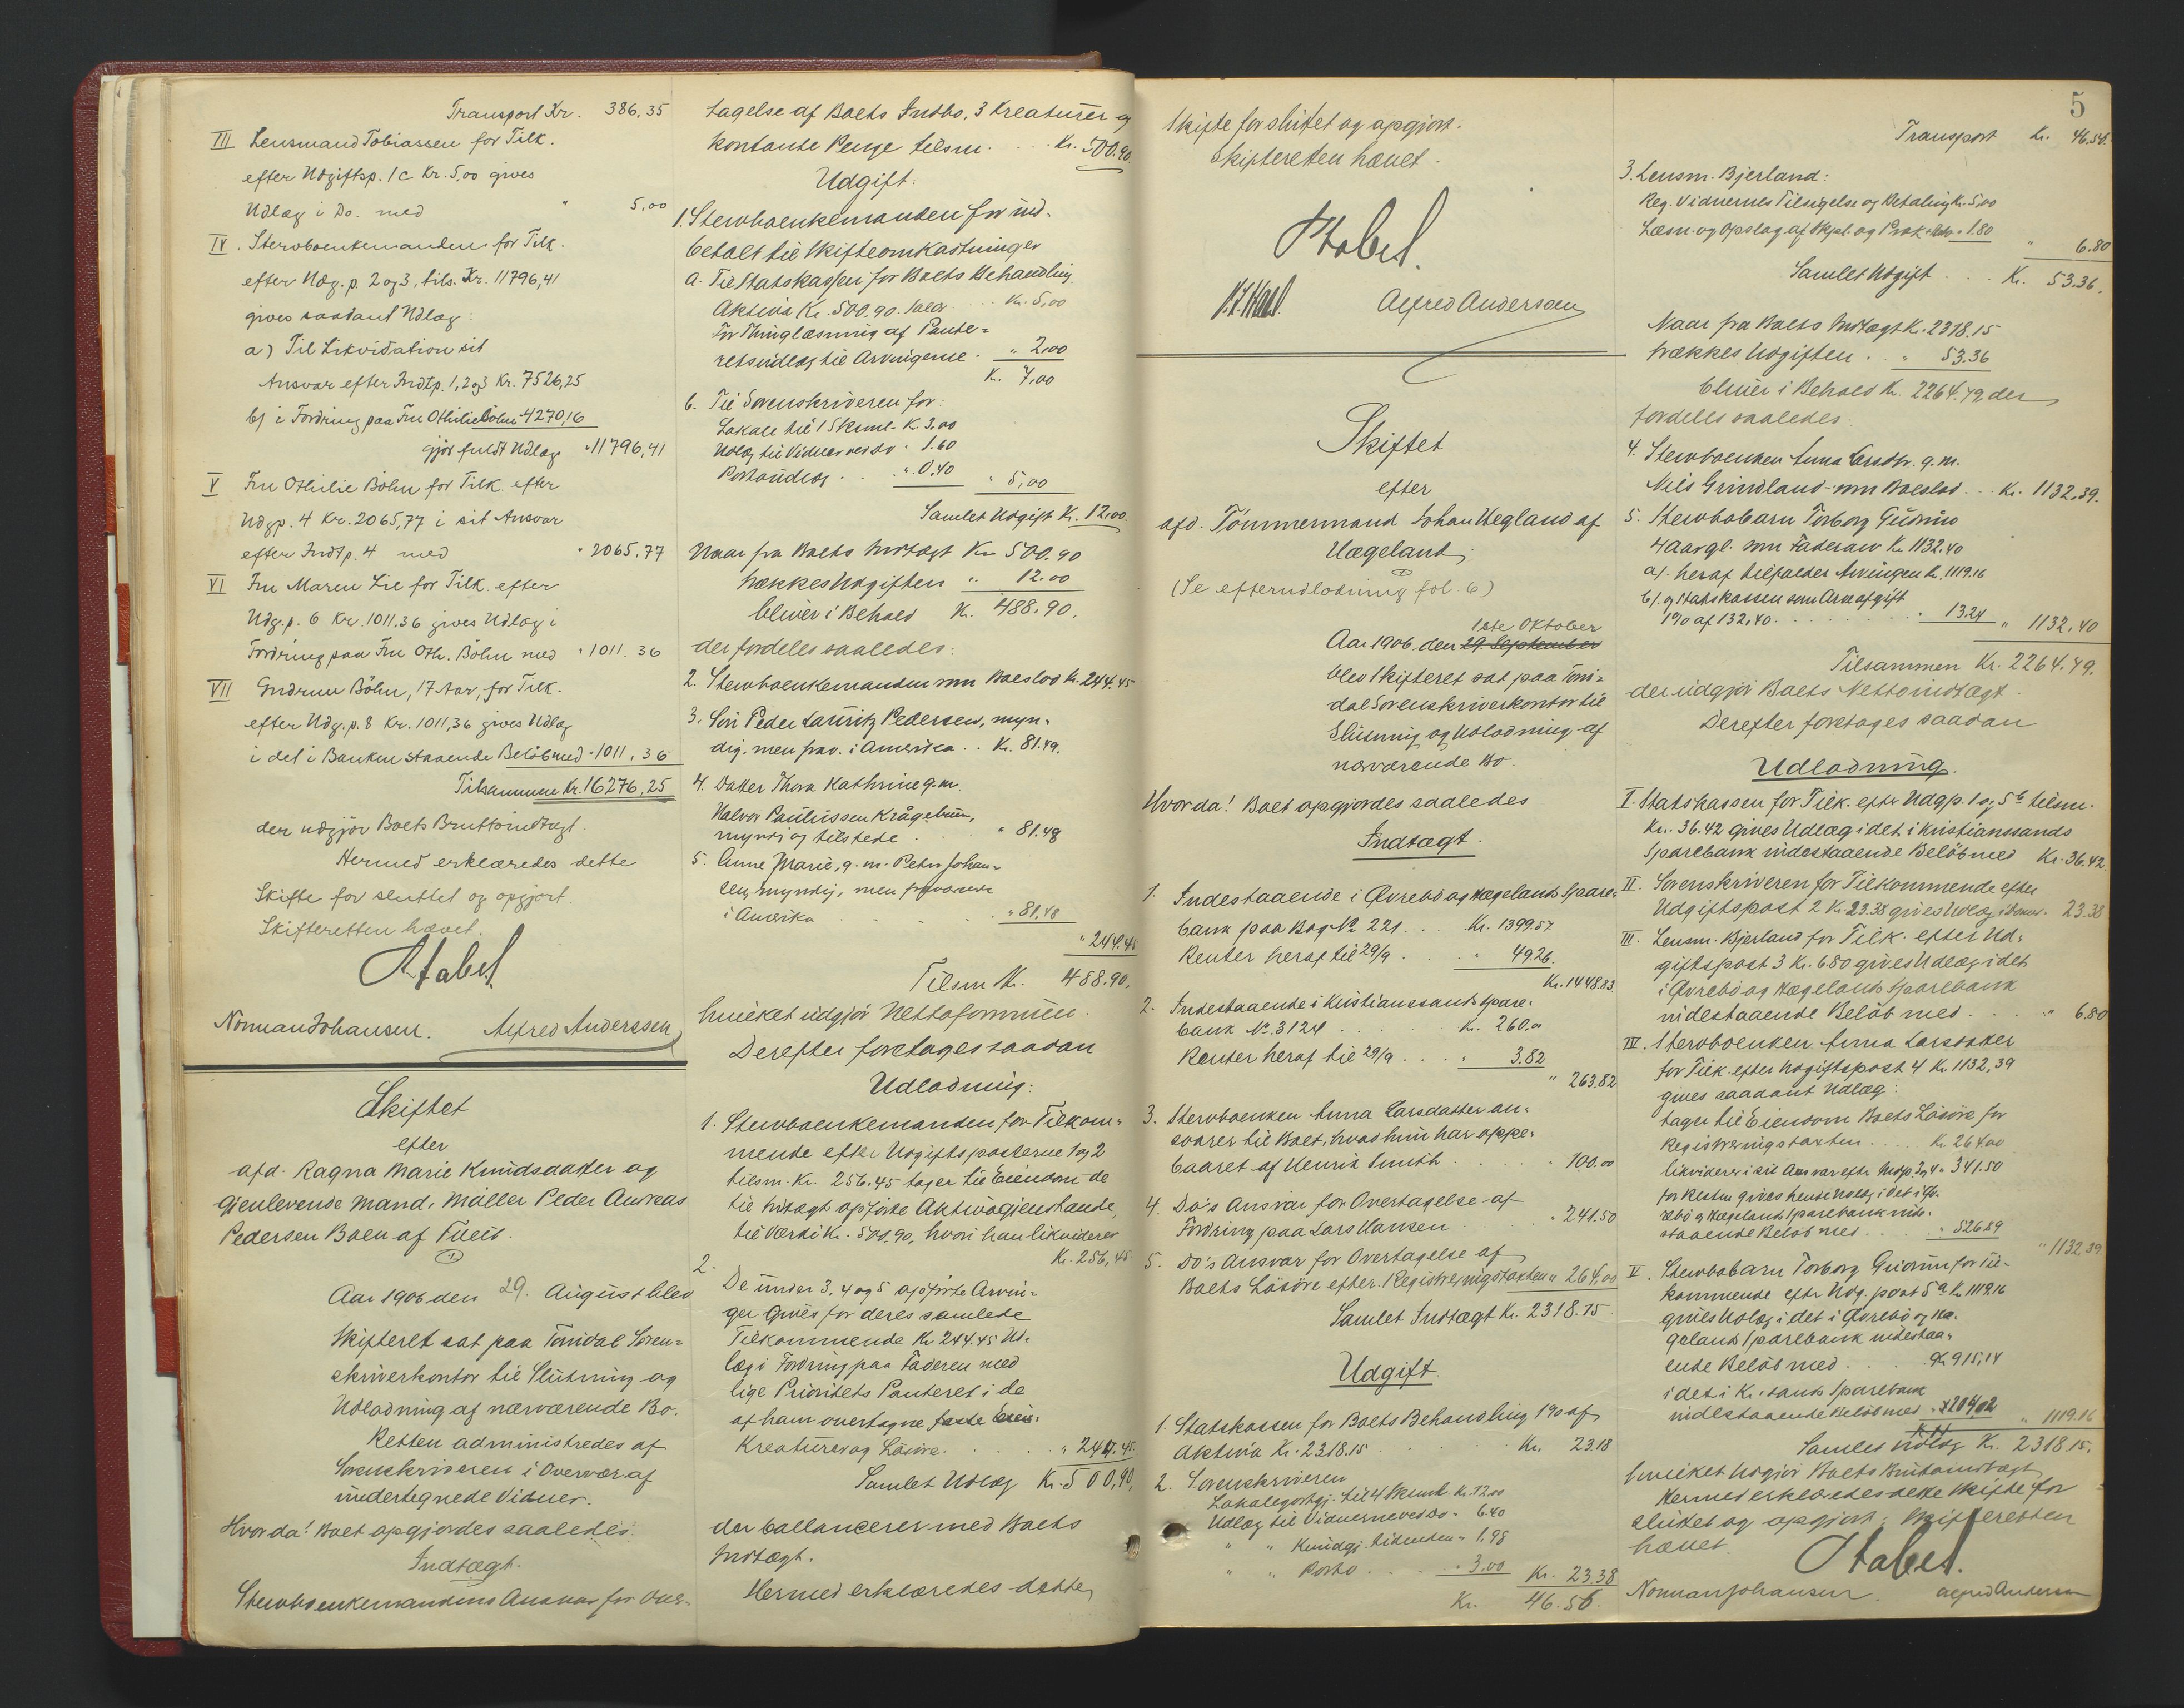 Transport Kr. 386,35
III Lensmand Tobiassen for Tilk.
efter Udgiftsp. 1c Kr. 5,00 gives
Udlæg i Do. med " 5,00
IV. Stervboenkemanden for Tilk.
efter Udg. p. 2 og 3, tils. Kr. 11796,41
gives saadant Udlæg:
a) Til Likvidation sit
Ansvar efter Indtp. 1, 2 og 3 Kr. 7526,25
b) i Fordring paa Fru Othilie Bøhn " 4270,16
gjør fuldt Udlæg " 11796,41
V Fru Othilie Bøhn for Tilk. efter
Udgp. 4 Kr. 2065,77 i sit Ansvar
efter Indtp. 4 med " 2065,77
VI Fru Maren Lie for Tilk. efter
Udg. p. 6 Kr. 1011,36 gives Udlæg i
Fordring paa Fru Oth. Bøhn med " 1011.36
VII Gudrun Bøhn, 17 Aar, for Tilk.
efter Udg. p. 8 Kr. 1011,36 gives Udlæg
i det i Banken staaende Beløb med " 1011,36
Tilsammen Kr. 16276,25
der udgjør Boets Bruttoindtægt.
Hermed erklæredes dette
Skifte for sluttet og opgjort.
Skifteretten hævet.
Stabel
Norman Johansen. Alfred Anderssen
Skiftet
efter
afd. Ragna Marie Knudsdatter og
gjenlevende Mand, Møller Peder Andreas
Pedersen Boen af
Aar 1906 den 29. August blev
Skifteret sat paa Torridal Soren=
skriverkontor til Slutning og
Udlodning af nærværende Bo.
Retten administredes af
Sorenskriveren i Overvær af
undertegnede Vidner.
Hvorda! Boet opgjordes saaledes.
Indtægt.
Stervboenkemandens Ansvar for Over-
tagelse af Boets Indbo, 3 Kreaturer og
kontante Penge tilsm. . . . Kr. 500.90
Udgift:
1. Stervboenkemanden for ind-
betalt til Skifteomkostninger
a. Til Statskassen for Boets Behandling
Aktiva Kr. 500.90. . . . Kr. 5,00
For Thinglæsning af Pante=
retsudlæg til Arvingerne. " 2,00
K. 7,00
b. Til Sorenskriveren for:
Lokale til 1 Skmml. K. 3,00
Udlæg til Vidner ved do " 1.60
Portoudlæg . . " 0.40
" 5,00
Samlet Udgift Kr. 12.00.
Naar fra Boets Indtægt Kr. 500.90
trækkes Udgiften " 12.00
bliver i Behold K. 488.90.
der fordeles saaledes:
2. Stervboenkemanden sin Boeslod Kr. 244.45
3. Søn Peder Lauritz Pedersen, myn-
dig, men frav. i Amerika . . Kr. 81.49.
4. Datter Thora Kathrine g.m.
Halvor Paulussen Krågebuen,
myndig og tilstede . " 81.48
5. Anne Marie, g.m. Peder Johan-
sen, myndig, men fraværende
i Amerika . . . . " 81.48
" 244.45
Tilsm K. 488.90.
hvilket udgjør Nettoformuen.
Derefter foretages saadan
Udlodning:
1. Stervboenkemanden for Tilkom-
mende efter Udgiftsposterne 1 og 2
tilsm. Kr. 256.45 tager til Eiendom de
til Indtægt opførte Aktivagjenstande,
til Værdi Kr. 500.90, hvori han likviderer
Kr. 256,45
2.
De under 3, 4 og 5 opførte Arvin-
ger gives for deres samlede
Tilkommende Kr. 244.45 Ud-
læg i Fordring paa Faderen med
lige Prioritets Panteret i de
af ham overtagne
Kreaturer og Løsøre. . . . " 244.45
Samlet Udlæg Kr. 500,90,
der ballancerer med Boets
Indtægt.
Hermed erklæredes dette
Skifte for sluttet og opgjort.
Skifteretten hævet.
Stabel.
Alfred Anderssen
Skiftet
efter
afd. Tømmermand Johan Hegland af
Vægeland
(Se efterudlodning fol. 6)
1ste Oktober
Aar 1906 den 29. September
blev Skifteret sat paa Torri=
dal Sorenskriverkontor til
Slutning og Udlodning af
nærværende Bo.
Hvorda! Boet opgjordes saaledes
Indtægt.
1. Indestaaende i Øvrebø og Hægelands Spare-
bank paa Bog No 221. . . Kr. 1399.57
Renter heraf til 29/9 . . . " 49.26.
Kr. 1448.83
2. Indestaaende i Kristianssands Spare-
bank No. 3124 . . . Kr. 260.00
Renter heraf til 29/9 . . . " 3.82
" 263.82
3. Stervboenken Anna Larsdatter an-
svarer til Boet, hvad hun har oppe-
baaret af Henrik Smith . . . . " 100.00
4. Do's Ansvar for Overtagelse af
Fordring paa Lars Hansen . . . " 241.50
5. Do's Ansvar for Overtagelse af
Boets Løsøre efter Registreringstaxten " 264,00
Samlet Indtægt Kr. 2318.15
Udgift.
1. Statskassen for Boets Behandling 1% af
Aktiva Kr. 2318.15 . . . . Kr. 23.18
2. Sorenskriveren
Lokalegodtgj. til 4 Skmml. Kr. 12.00
Udlæg til Vidnerne ved do " 6.40
" " Kundgj. tidenden " 1.98
" " Porto . . . . " 3.00
Kr. 23.38
Kr. 46.56.
5
Transport Kr. 46.56.
3. Lensm. Bjerland:
Reg. Vidnernes Tilsigelse og Betaling Kr. 5,00
Læsn. og Opslag af Skpl. og Prok. " 1.80
" 6.80
Samlet Udgift . . . Kr. 53.36.
Naar fra Boets Indtægt K. 2318.15
trækkes Udgiften . . " 53.36
bliver i Behold Kr. 2264.79 der
fordeles saaledes.
4. Stervboenken Anna Larsdtr. g.m.
Nils Grindland sin Boeslod . . . Kr. 1132.39.
5. Stervbobarn Torborg Gudrun
4 Aar gl. sin Faderarv Kr. 1132.40
a). heraf tilfalder Arvingen Kr. 1119.16
b). og Statskassen som Arveafgift
1% af 132,40. . . . . . " 13.24 " 1132,40
Tilsammen Kr. 2264.79.
der udgjør Boets Nettoindtægt.
Derefter foretages saadan
Udlodning.
I. Statskassen for Tilk. efter Udgp. 1 og 5b tilsm.
Kr. 36.42 gives Udlæg i det i Kristianssands
Sparebank indestaaende Beløb med Kr. 36.42
II. Sorenskriveren for Tilkommende efter
Udgiftspost 2 Kr. 23.38 gives Udlæg i . 23.38
III. Lensm. Bjerland for Tilk. efter Ud-
giftspost 3 Kr. 6.80 gives Udlæg i det
i Øvrebø og Hægelands Sparebank
indestaaende Beløb med . . . " 6.80
IV. Stervboenken Anna Larsdatter
for Tilk. efter Udgiftspost 4 Kr. 1132,39
gives saadant Udlæg:
tager til Eiendom Boets Løsøre for
Registreringstaxten . . . Kr. 264.00
likviderer i sit Ansvar efter Indtp. 3 og 4 " 341.50
for Resten gives hende Udlæg i det i Øv-
rebø og Hægelands Sparebank inde-
staaende Beløb med . . . " 526.89
" 1132.39.
V. Stervbobarn Torborg Gudrun for Til-
kommende efter Udg. post 5a Kr. 1119.16
gives Udlæg i det i Øvrebø og Hæ-
gelands Sparebank indestaa-
ende Beløb med . . . . Kr. 915,14
i det i Kr.sands Sparebank
indestaaende Beløb med " 204.02 " 1119.16
Samlet Udlæg Kr. 2318.15.
hvilket udgjør Boets Bruttoindtægt
Hermed erklæredes dette Skifte for
sluttet og opgjort; Skifteretten
hævet.
Stabel.
Norman Johansen. Alfred Anderssen